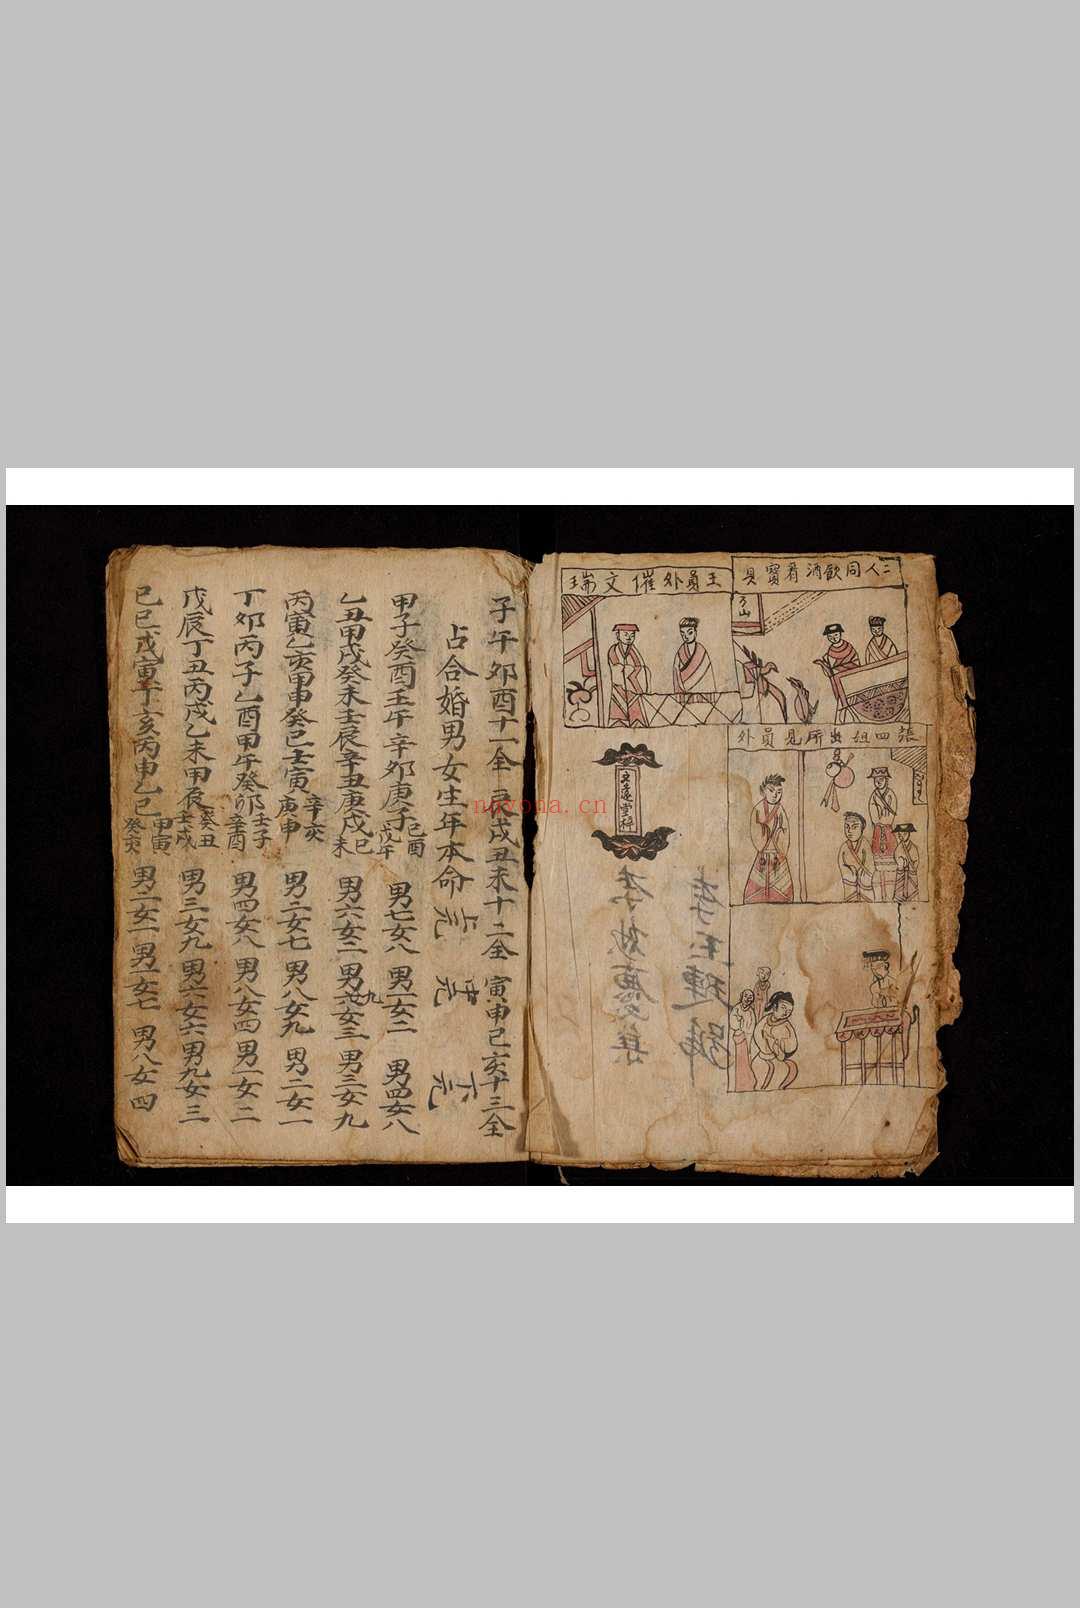 二人同飲酒看寶貝
王員外催文瑞
張四姐出所見員外
李玉璉號
李妙應集
子午卯酉十一全 辰戌丑未十二全 寅申巳亥十三全
占合婚男女生年本命 上元 中元 下元
甲子癸酉壬午辛卯庚子己酉戊午 男七女八 男一女二 男四女八
乙丑甲戌癸未壬辰辛丑庚戌己未 男六女二 男九女三 男三女九
丙寅乙亥甲申癸巳壬寅辛亥庚申 男二女七 男八女九 男二女一
丁卯丙子乙酉甲午癸卯壬子辛酉 男四女八 男八女四 男一女二
戊辰丁丑丙戌乙未甲辰癸丑壬戌 男三女九 男六女六 男九女三
己巳戊寅丁亥丙申乙巳甲寅癸亥 男二女一 男一女七 男八女四
nuvona.cn